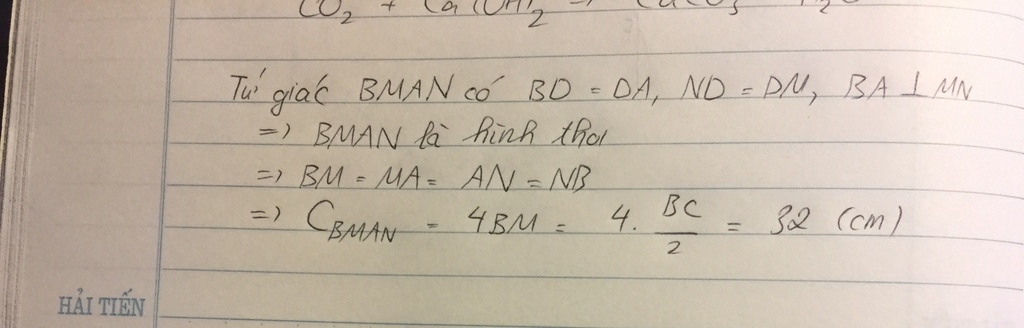 CO₂ + Ca(OH)₂ → CaCO₃ H₂O
Tứ giác BMAN có BD = DA, ND = DM, BA ⊥ MN
=> BMAN là hình thoi
=> BM = MA = AN = NB
=> C_BMAN = 4BM = 4. BC/2 = 32 (cm)
HẢI TIẾN